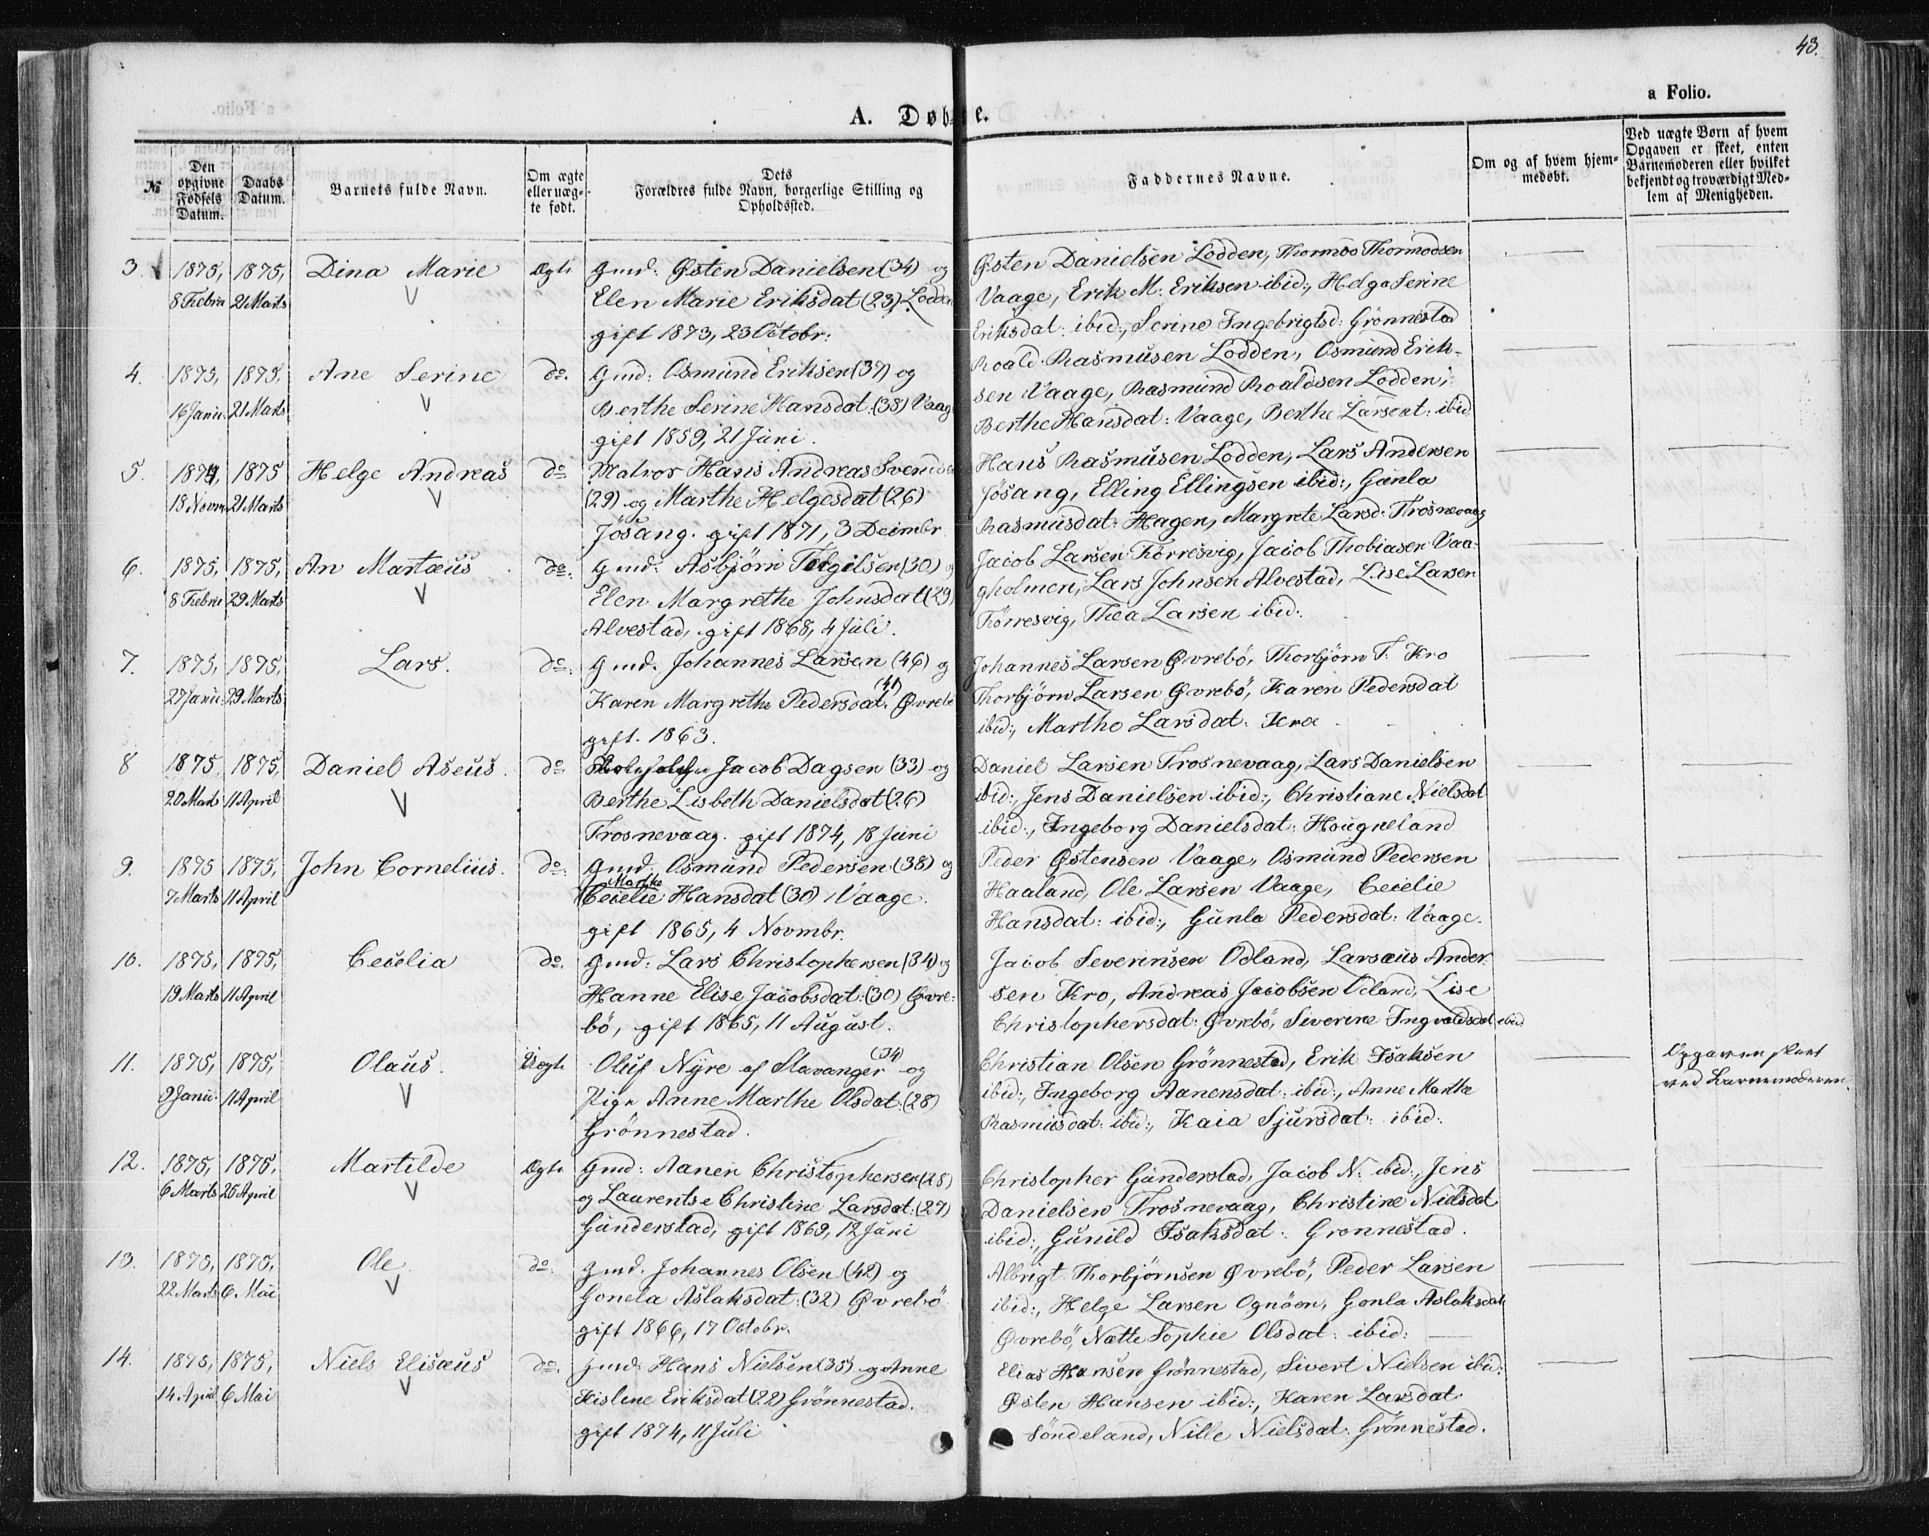 43.
a Folio.
A. Døbte.
№
Den opgivne Fødsels Datum.
Daabs Datum.
Barnets fulde Navn.
Om ægte eller uægte født.
Dets Forældres fulde Navn, borgerlige Stilling og Opholdssted.
Faddernes Navne.
Om og af hvem hjemmedøbt.
Ved uægte Børn af hvem Opgaven er skeet, enten Barnemoderen eller hvilket bekjendt og troværdigt Medlem af Menigheden.
3 1875, 1875, Dina Marie Ægte Gmd: Østen Danielsen (34) og
8 Febru 21 Marts Elen Marie Eriksdat (23) Lodden
gift 1873, 23 Octobr:
Østen Danielsen Lodden, Thormoo Thormodsen
Vaage, Erik M. Eriksen ibid:, Helga Serine
Eriksdat: ibid:, Serine Ingebrigtsd: Grönnestad
4. 1875, 1875, Ane Serine do. Gmd: Osmund Eriksen (37) og
16 Janu 21 Marts Berthe Serine Hansdat: (38) Vaag
gift 1859, 21 Juni.
Roald Rasmusen Lodden, Osmund Erik-
sen Vaage, Rasmund Roaldsen Lodden,
Berthe Hansdat: Vaage, Berthe Larsdat: ibid
5. 1874, 1875 Helge Andreas do Matros Hans Andreas Svendsen
18 Novm 21 Marts (29) og Marthe Helgesdat (26)
Jösang. gift 1871, 3 Decimbr
Hans Rasmusen Lodden, Lars Andersen
Jösang, Elling Ellingsen ibid:, Gunla
Rasmusdat: Hagen, Margrete Larsd: Trosnevaag
6. 1875, 1875, An Martæus do: Gmd: Asbjörn Teigilsen (30) og
8 Febru 29 Marts Elen Margrethe Johnsdat (29)
Alvestad, gift 1868, 4 Juli.
Jacob Larsen Förresvig, Jacob Thobiasen Vaa-
gholmen, Lars Johnsen Alvestad, Lise Larsen
Förresvig, Thea Larsen ibid:
7. 1875, 1875, Lars. do: Gmd. Johannes Larsen (46) og
27 Janu: 29 Marts Karen Margrethe Pedersdat (41) Øvrebö
gift. 1863.
Johannes Larsen Øvrebö, Thorbjörn T. Kro
Thorbjörn Larsen Øvrebö, Karen Pedersdat
ibid:, Martho Larsdat:
8 1875, 1875, Daniel Aseus. do Jacob Dagsen (33) og
20 Marts 11 April Berthe Lisbeth Danielsdat (26)
Trosnevaag. gift 1874, 18 Juni
Daniel Larsen Trosnevaag, Lars Danielsen
ibid:, Jens Danielsen ibid:, Christiane Nielsdat
ibid:, Ingeborg Danielsdat: Hougneland
9. 1875 1875, John Cornelius. do: Gmd: Osmund Pedersen (38) og
7 Marts 11 April Marthe Cecelie Hansdat (30) Vaage.
gift 1865, 4 Novmbr.
Peder Østensen Vaage, Osmund Pedersen
Haaland, Ole Larsen Vaage, Cecelie
Hansdat: ibid:, Gunla Pedersdat: Vaage.
10. 1875, 1875, Cecelia do. Gmd: Lars Christophersen (34) og
19 Marts 11 April Hanne Elise Jacobsdat: (30) Øvre-
bö, gift 1865, 11 August.
Jacob Severinsen Odland, Larsæus Ander-
sen Kro, Andreas Jacobsen Odland, Lise
Christophersdat: Øvrebö, Siverine Ingvaldsdat ibid
11. 1875, 1875, Olaus. Uægte Oluf Nyre af Stavanger (34) og
9 Janu: 11 April Pige Anne Marthe Olsdat: (28)
Grönnestad.
Christian Olsen Grönnestad, Erik Isaksen
ibid:, Ingeborg Aanensdat: ibid:, Anne Marthe
Rasmusdat: ibid:, Kaia Sjursdat: ibid:
Opgaven skeet
ved Barnemoderen.
12. 1875, 1875, Martilde Ægte Gmd: Aanen Christophersen (28)
6 Marts 25 April og Laurentse Christine Larsdat: (27)
Gunderstad, gift 1869, 12 Juni
Christopher Gunderstad, Jacob N. ibid:, Jens
Danielsen Trosnevaag, Christine Nielsdat
ibid:, Gunild Isaksdat: Gronnestad.
13. 1875, 1875, Ole. do: Gmd. Johannes Olsen (42) og
22 Marts 6 Mai Gonela Aslaksdat: (32) Øvrebö
gift 1866, 17 Octobr.
Albrigt Thorbjörnsen Øvrebö, Peder Larsen
ibid:, Helge Larsen Ognöen, Gonla Aslaksdat
Øvrebö, Nætte Sophie Olsdat: ibid:
14. 1875, 1875, Niels Elisæus do: Gmd: Hans Nielsen (35) og Anne
14 April 6 Mai Kislene Eriksdat (22) Grönnestad.
gift 1874, 11 Juli
Elias Hansen Grönnestad, Sivert Nielsen ibid:
Østen Hansen ibid:, Karen Larsdat
Söndeland, Nille Nielsdat: Grönnestad.